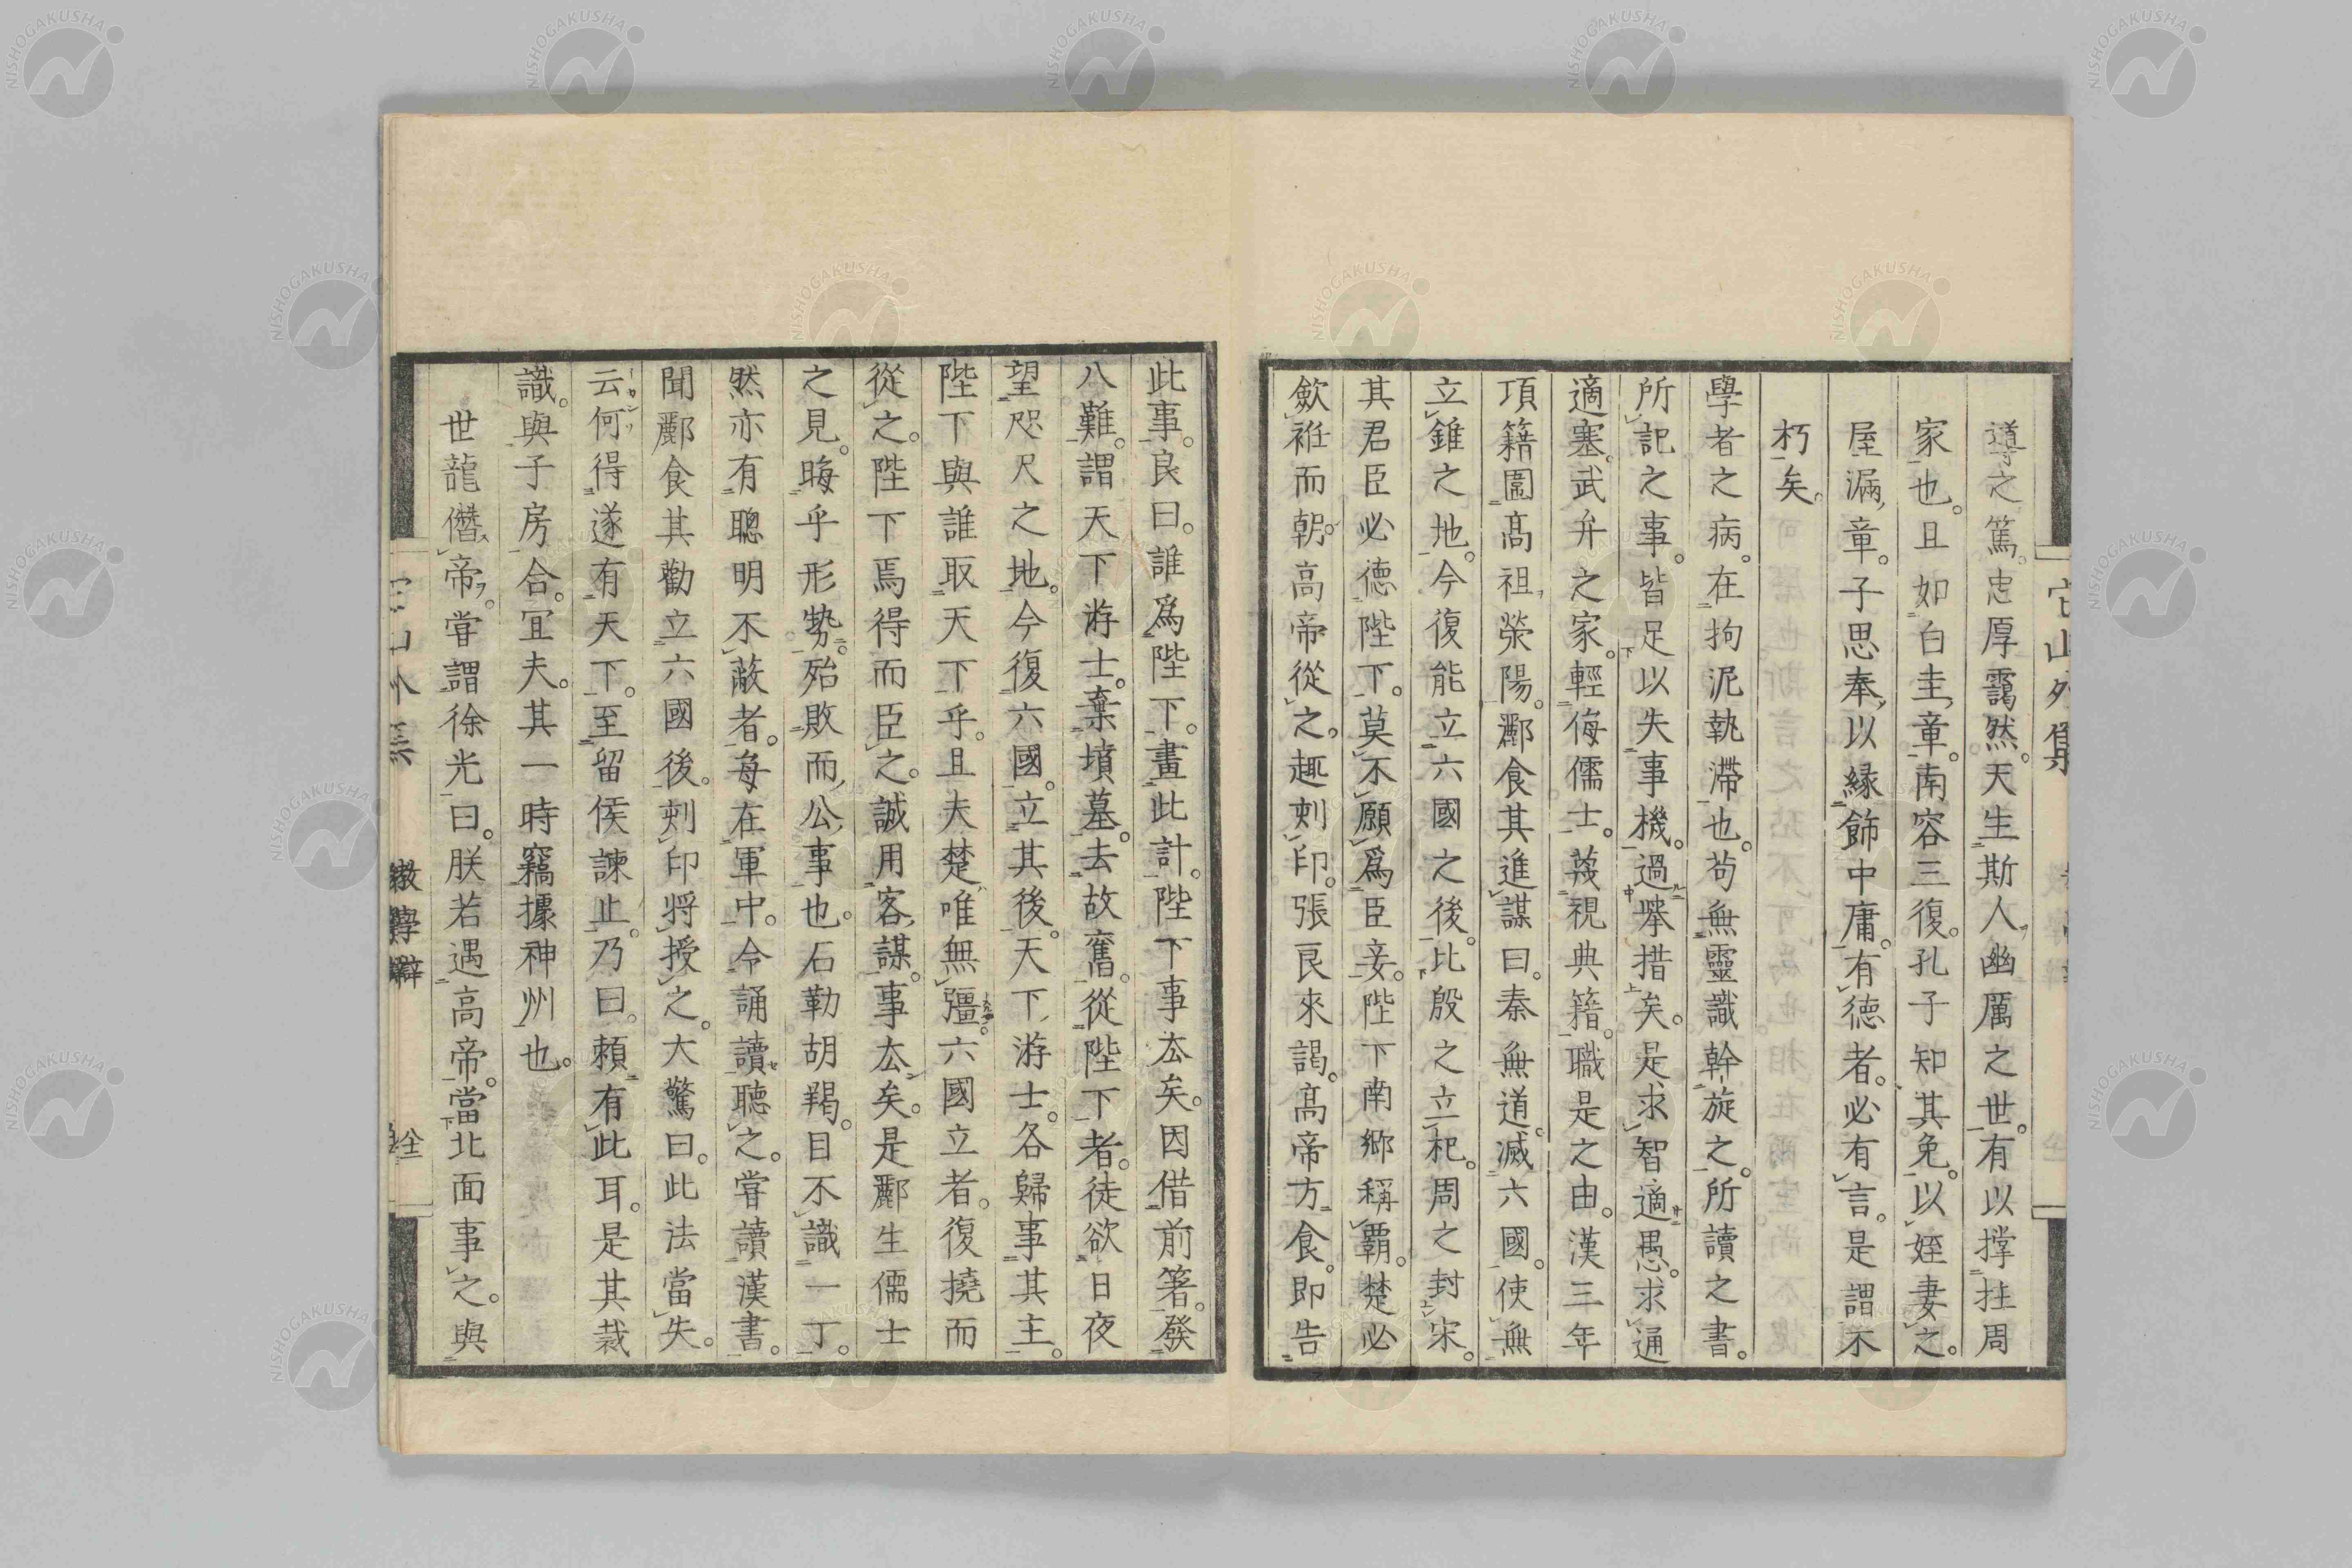 道之篤。忠厚靄然。天生斯人。幽厲之世。有以撑拄周
家也。且如白圭章。南容三復。孔子知其免。以姪妻之。
屋漏章。子思奉以緣飾中庸。有德者。必有言。是謂不
朽矣。
學者之病。在拘泥執滯也。苟無靈識幹旋之。所讀之書。
所記之事。皆足以失事機。過擧措矣。是求智適愚。求通
適塞。武弁之家。輕侮儒士。蔑視典籍。職是之由。漢三年
項籍圍高祖榮陽。酈食其進謀曰。秦無道。滅六國。使無
立錐之地。今復能立六國之後。比殷之立杞。周之封宋。
其君臣必德陛下。莫不願爲臣妾。陛下南鄉稱覇。楚必
歛袵而朝。高帝從之。趣刺印。張良來謁。高帝方食。即告
此事。良曰。誰爲陛下。畫此計。陛下事厺矣。因借前箸。發
八難。謂天下游士。棄墳墓。去故奮。從陛下者。徒欲日夜
望咫尺之地。今復六國。立其後。天下游士。各歸事其主。
陛下與誰取天下乎。且夫楚唯無彊。六國立者。復撓而
從之。陛下焉得而臣之。誠用客謀。事厺矣。是酈生儒士
之見。晦乎形勢。殆敗而公事也。石勒胡羯。目不識一丁。
然亦有聰明不蔽者。每在軍中。令誦讀聽之。甞讀漢書。
聞酈食其勸立六國後。刺印將授之。大驚曰。此法當失。
云何得遂有天下。至留侯諫止。乃曰。頼有此耳。是其裁
識。與子房合。冝夫。其一時竊據神州也。
世龍僭帝。甞謂徐光曰。朕若遇高帝。當北面事之。與